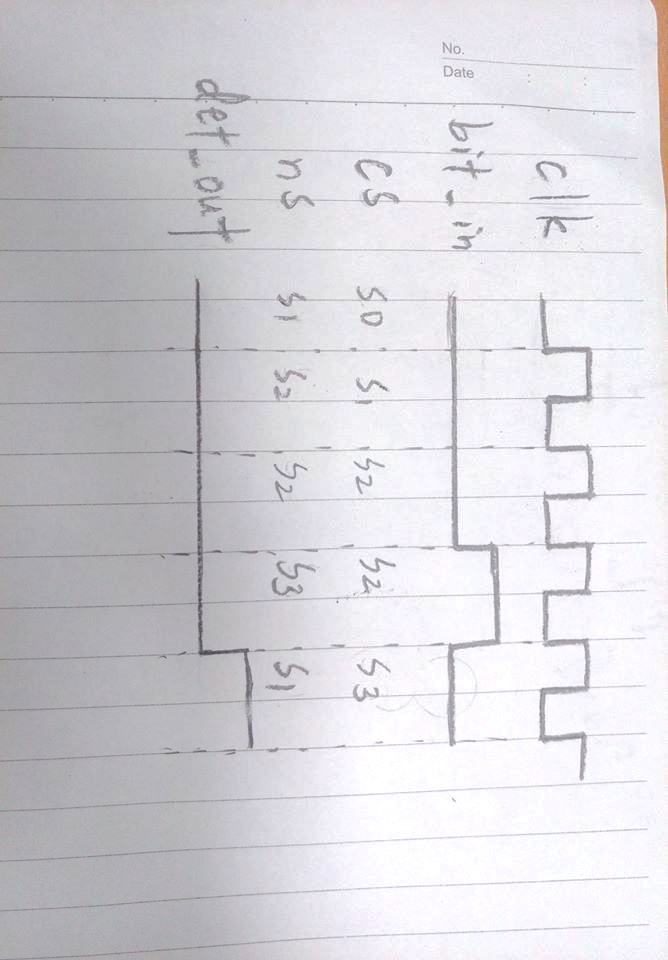 No.
Date : :
clk
bit_in
cs S0 S1 S2 S2 S3
ns S1 S2 S2 S3 S1
det_out